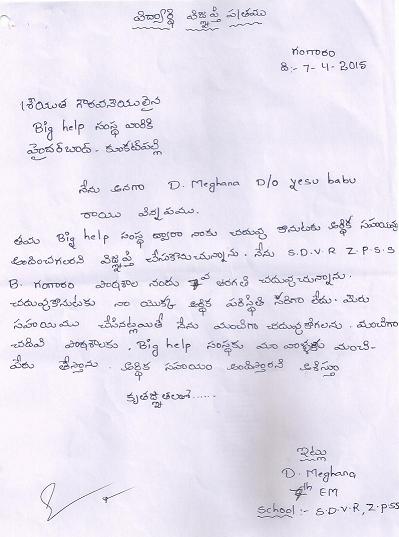 విద్యార్థి విజ్ఞప్తి పత్రము
గంగారం
ది:- 7-4-2015
శ్రీయుత గౌరవనీయులైన
Big help సంస్థ వారికి
హైదర్‌బాద్ - కూకట్‌పల్లి
నేను అనగా D. Meghana D/o yesu babu
రాయు విన్నపము.
తమ Big help సంస్థ ద్వారా నాకు చదువు కొనుటకు ఆర్థిక సహాయం
అందించగలరని విజ్ఞప్తి చేసుకొనుచున్నాను. నేను S.D.V.R Z.P.S.S
B. గంగారం పాఠశాల నందు వ తరగతి చదువుచున్నాను.
చదువుకొనుటకు నా యొక్క ఆర్థిక పరిస్థితి సరిగా లేదు. మీరు
సహాయము చేసినట్లయితే నేను మంచిగా చదువుకోగలను. మంచిగా
చదివి పాఠశాలకు, Big help సంస్థకు మా వాళ్ళకు మంచి-
పేరు తెస్తాను. ఆర్థిక సహాయం అందిస్తారని ఆశిస్తూ
కృతజ్ఞతలతో......
ఇట్లు
D. Meghana
th EM
School :- S.D.V.R, Z.P.SS